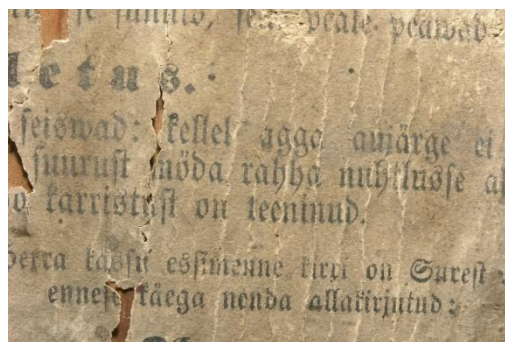 se sunnib, se peale peawad
letus.
seiswad: kellel agga aujärge ei
suurust möda rahha nuhtlusse
karristust on teeninud.
kässu essimenne kirri on Surest
ennese käega nenda allakirjutud: